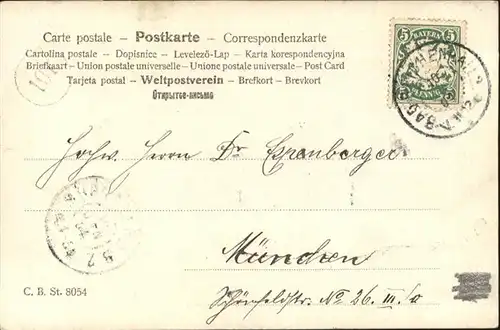 Carte postale – Postkarte – Correspondenzkarte
Cartolina postale – Dopisnice – Levelező-Lap – Karta korespondencyjna
Briefkaart – Union postale universelle – Unione postale universale – Post Card
Tarjeta postal – Weltpostverein – Brefkort – Brevkort
Открытое-письмо
5 BAYERN 5
PFENNIG
Hochw. Herrn Dr Espenberger
München
Schönfeldstr. No 26 III/o
C. B. St. 8054